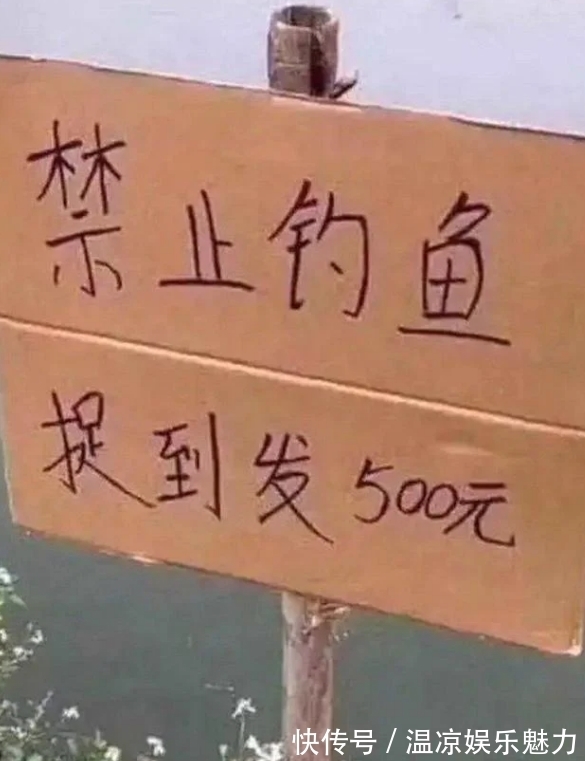 禁止钓鱼
捉到发500元
快传号/温凉娱乐魅力